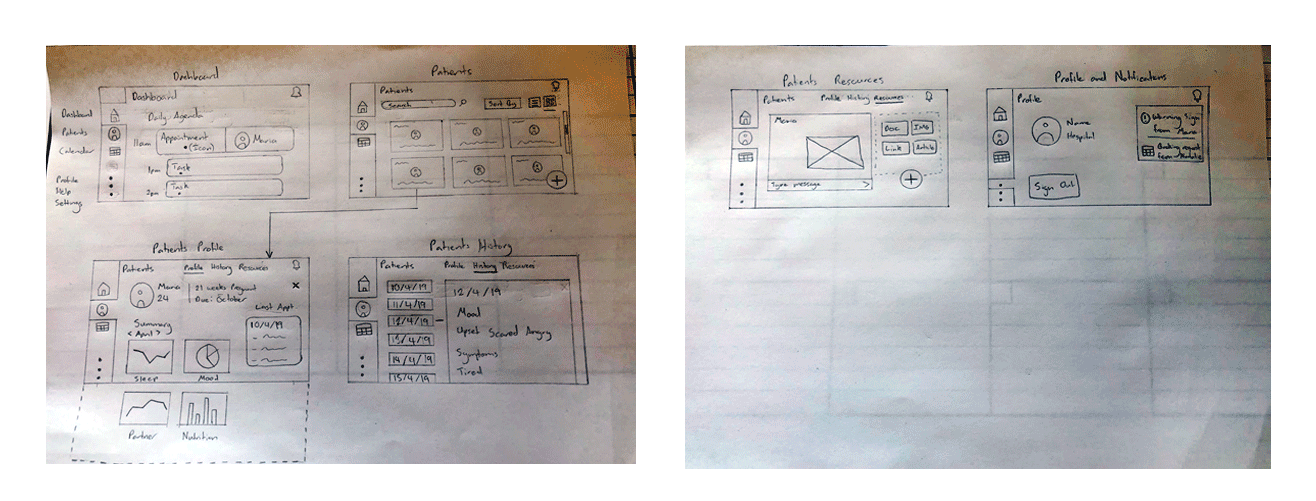 Dashboard
Dashboard
Dashboard
Patients
Calendar
Profile
Help
Settings
Daily Agenda
11am
Appointment
(Icon)
Maria
1pm
Task
2pm
Task
Patients
Patients
Search
Sort By
Patients Profile
Patients
Profile History Resources
Maria
24
21 weeks Pregnant
Due: October
X
Last Appt.
10/4/19
Summary
< April >
Sleep
Mood
Partner
Nutrition
Patients History
Patients
Profile History Resources
10/4/19
11/4/19
12/4/19
13/4/19
14/4/19
15/4/19
12/4/19
x
Mood
Upset Scared Angry
Symptoms
Tired
Patients Resources
Patients
Profile History Resources
Maria
Type message >
Doc
Link
Article
Profile and Notifications
Profile
Name
Hospital
Sign Out
Warning Sign
from Maria
Booking request
from